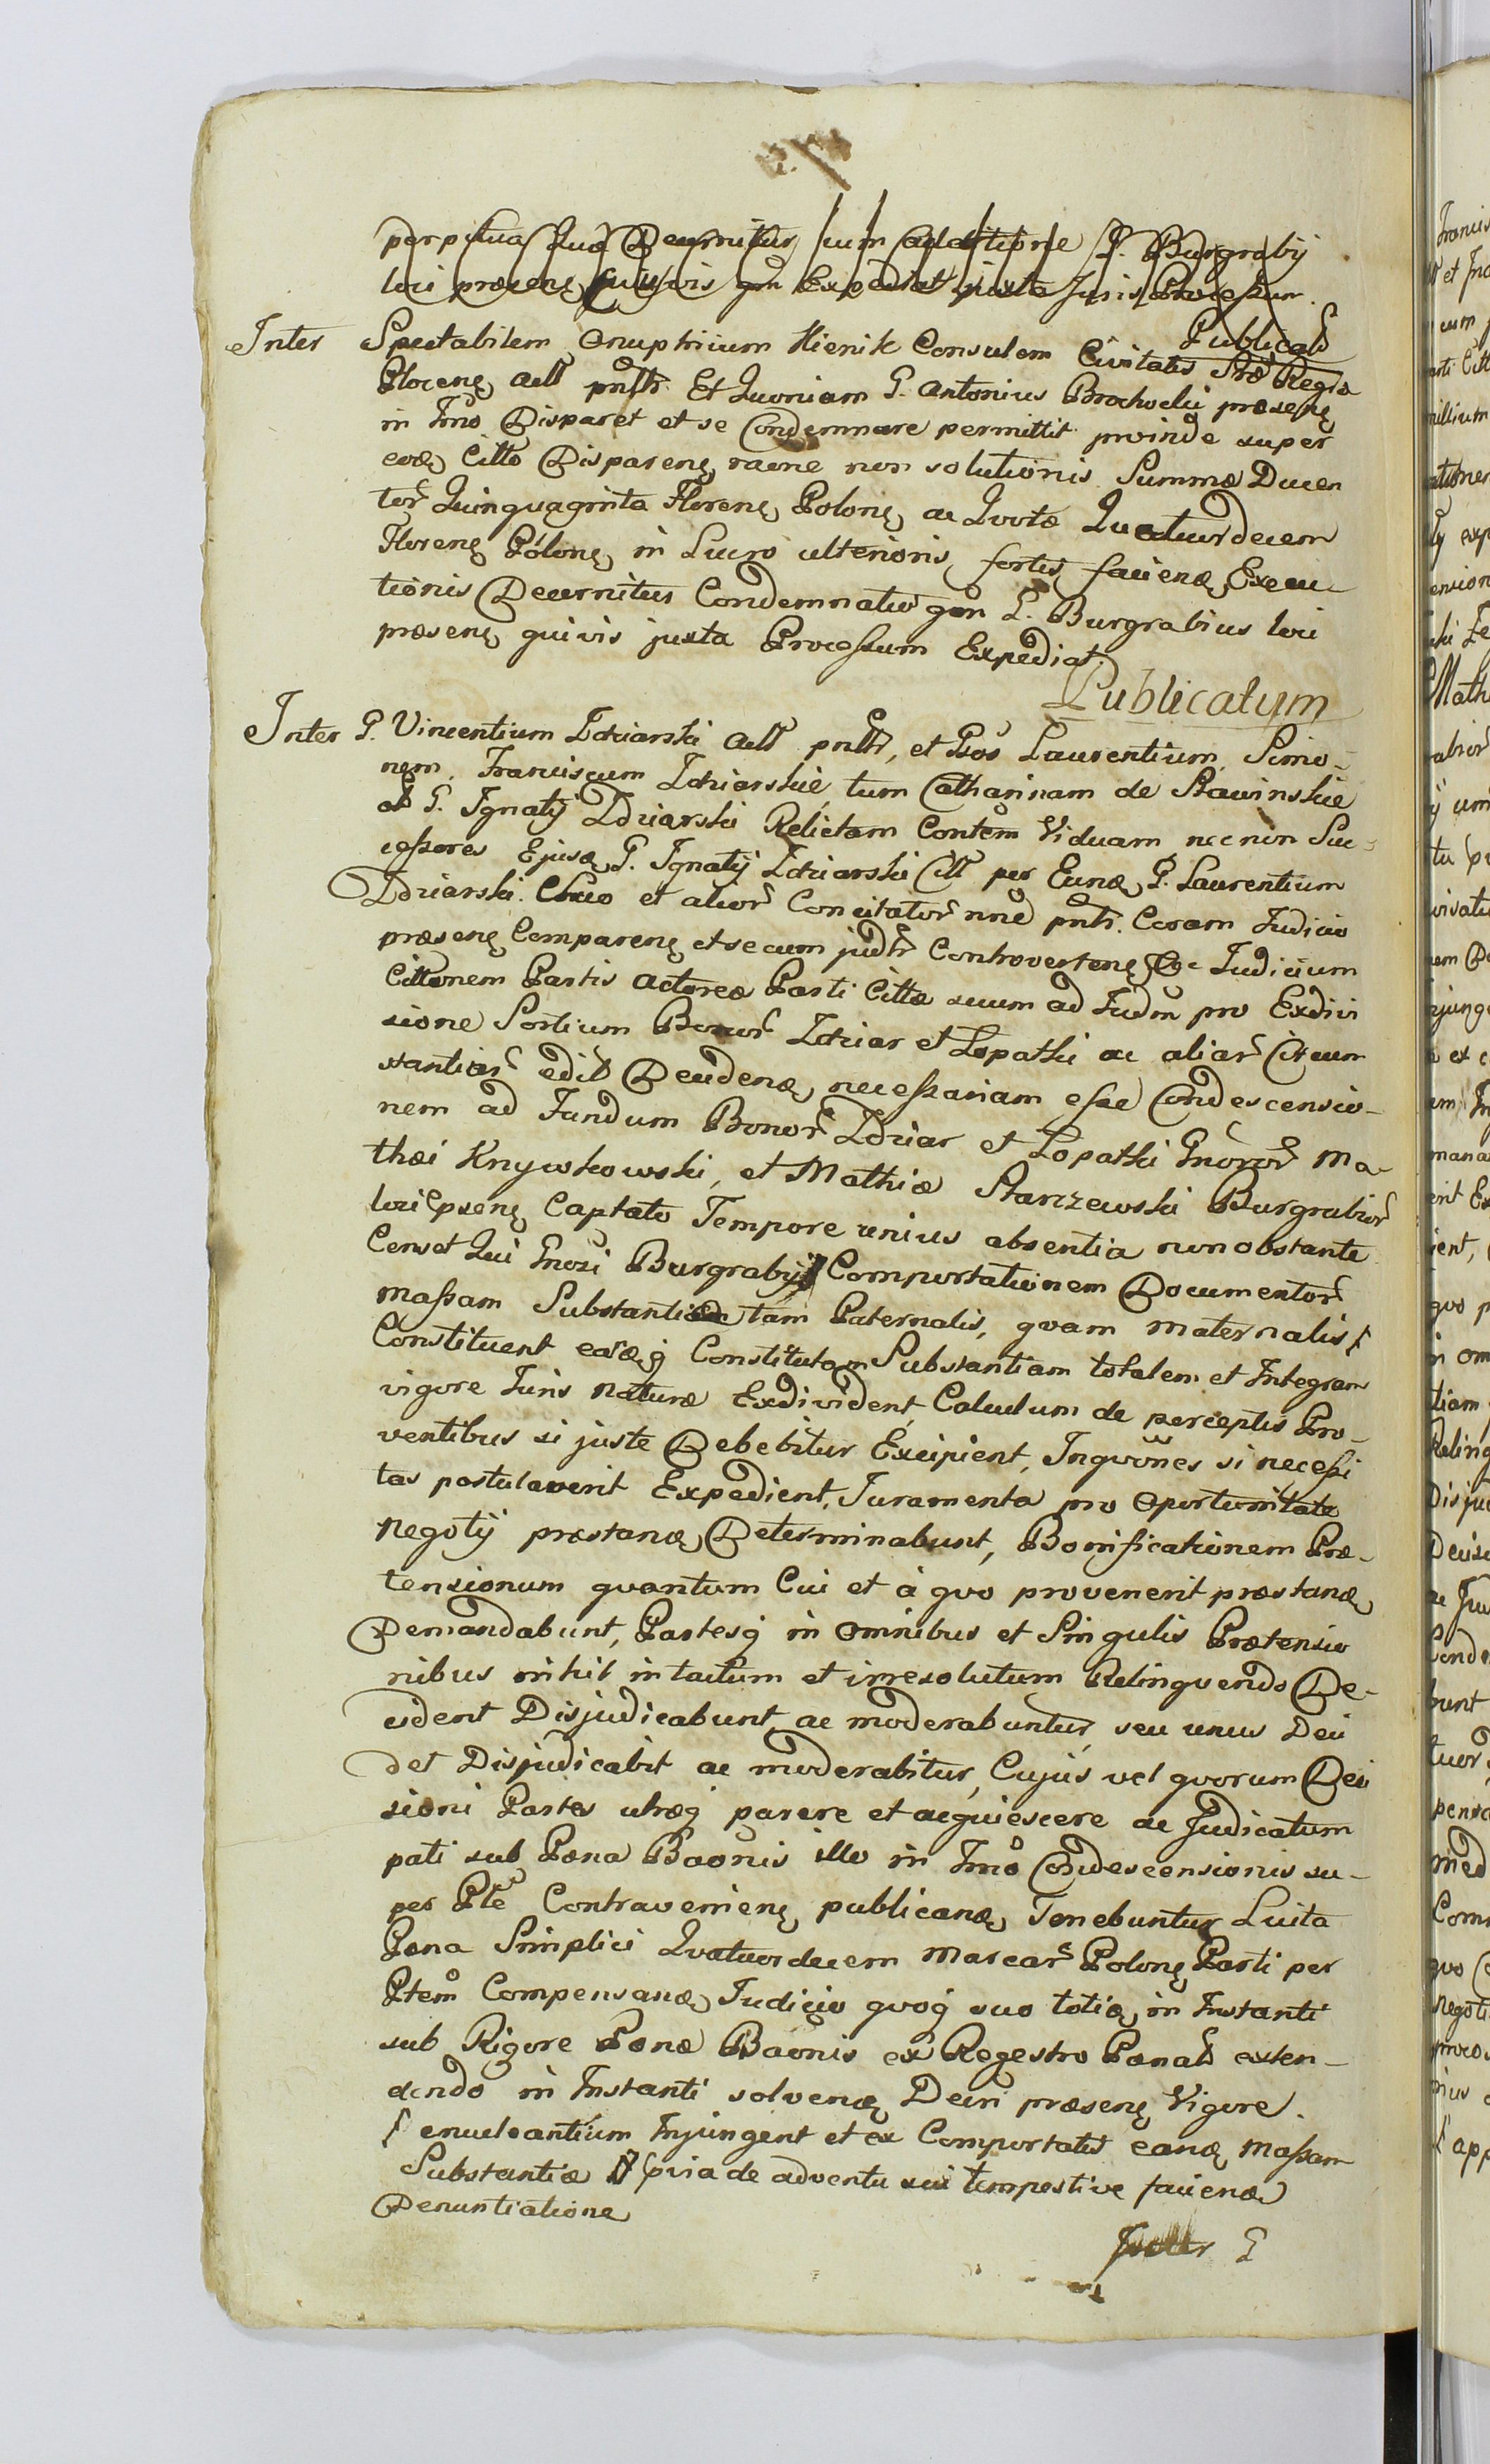 perpetua Quæ Decernitur cum additione G. Burgrabij
loci præsenę quivis gm Expediat juxta Juris Processum.
Publicat
Inter Spectabilem Onuphrium Hienik Consulem Civitatis Sræ Regiæ
Plocenę Act pnltr. Et Quoniam G. Antonius Brochocki præsenę
in Tmo Disparet et se Condemnare permittit proinde super
eoæ Citto Disparenę raone non solutionis Summæ Ducen
tor Quinquaginta Florenę Polonę ac Quotæ Quatuordecem
Florenę Polonę in Lucro ulterioris fortis faciendæ Execu-
tionis Decernitur Condemnatio gm G. Burgrabius loci
præsenę quivis juxta Processum Expediat.
Publicatum
Inter G. Vincentium Zdziarski Act pnltr, et Gsos Laurentium, Simo-
nem, Franciscum Zdziarskie, tum Catharinam de Stawinskie
ab G. Ignatij Zdziarski Relictam Contem Viduam necnon Suc-
cessores Ejusæ G. Ignatij Zdziarski Citt per Eunæ G. Laurentium
Zdziarski. Suo et alior Concitator nne pntr. Coram Judicio
præsenę Comparenę et secum judtr Controvertenę Qe Judicium
Cittonem Partis Actoreæ Parti Cittæ suum ad Judm pro Exdivi
sione Sortium Bonor Zdziar et Lopatki ac aliar Circum
stantiar edit Decidenæ, necessariam esse Condescensio-
nem ad Fundum Bonor Zdziar et Lopatki Gnoror Ma-
thæi Knywkowski, et Mathiæ Starczewski Burgrabior
loci psenę Captato Tempore unius absentia non obstante
Censet Qui Gnosi Burgrabij Comportationem Documentor
massam Substantiæ tam Paternalis, quam maternalis
Constituent eaæq Constitutam Substantiam totalem et Integram
vigore Juris naturæ Exdivident, Calculum de perceptis Pro-
ventibus si juste Debebitur Excipient, Inquönes si necessi
tas postulaverit Expedient, Juramenta pro Oportunitate
Negotij præstanæ Determinabunt, Bonificationem Præ-
tensionum quantum Cui et à quo provenerit præstanæ
Demandabunt, Partesq in Omnibus et Singulis Prætensio
nibus nihil intactum et irresolutum Relinquendo De-
cident Disjudicabunt ac moderabuntur, seu unus Deci
det Disjudicabit ac moderabitur, Cujus vel quorum Deci
sioni Partes utræq parere et acquiescere ac Judicatum
pati sub Pæna Baonis illo in Tmo Condescensionis su-
per Pte Contravenienę publicanæ Tenebuntur Luita
Pæna Simplici Quatuordecem Marcar Polonę Parti per
Ptem Compensanæ Judicio quoq suo totiæ in Instanti
sub Rigore Pænæ Baonis ex Regestro Pænat exten-
dendo in Instanti solvenæ Decri præsenę Vigore.
enucleantium Injungent et ex Comportatis eanæ Massam
Substantiæ pvia de adventu sui tempestive facienæ
Denuntiatione